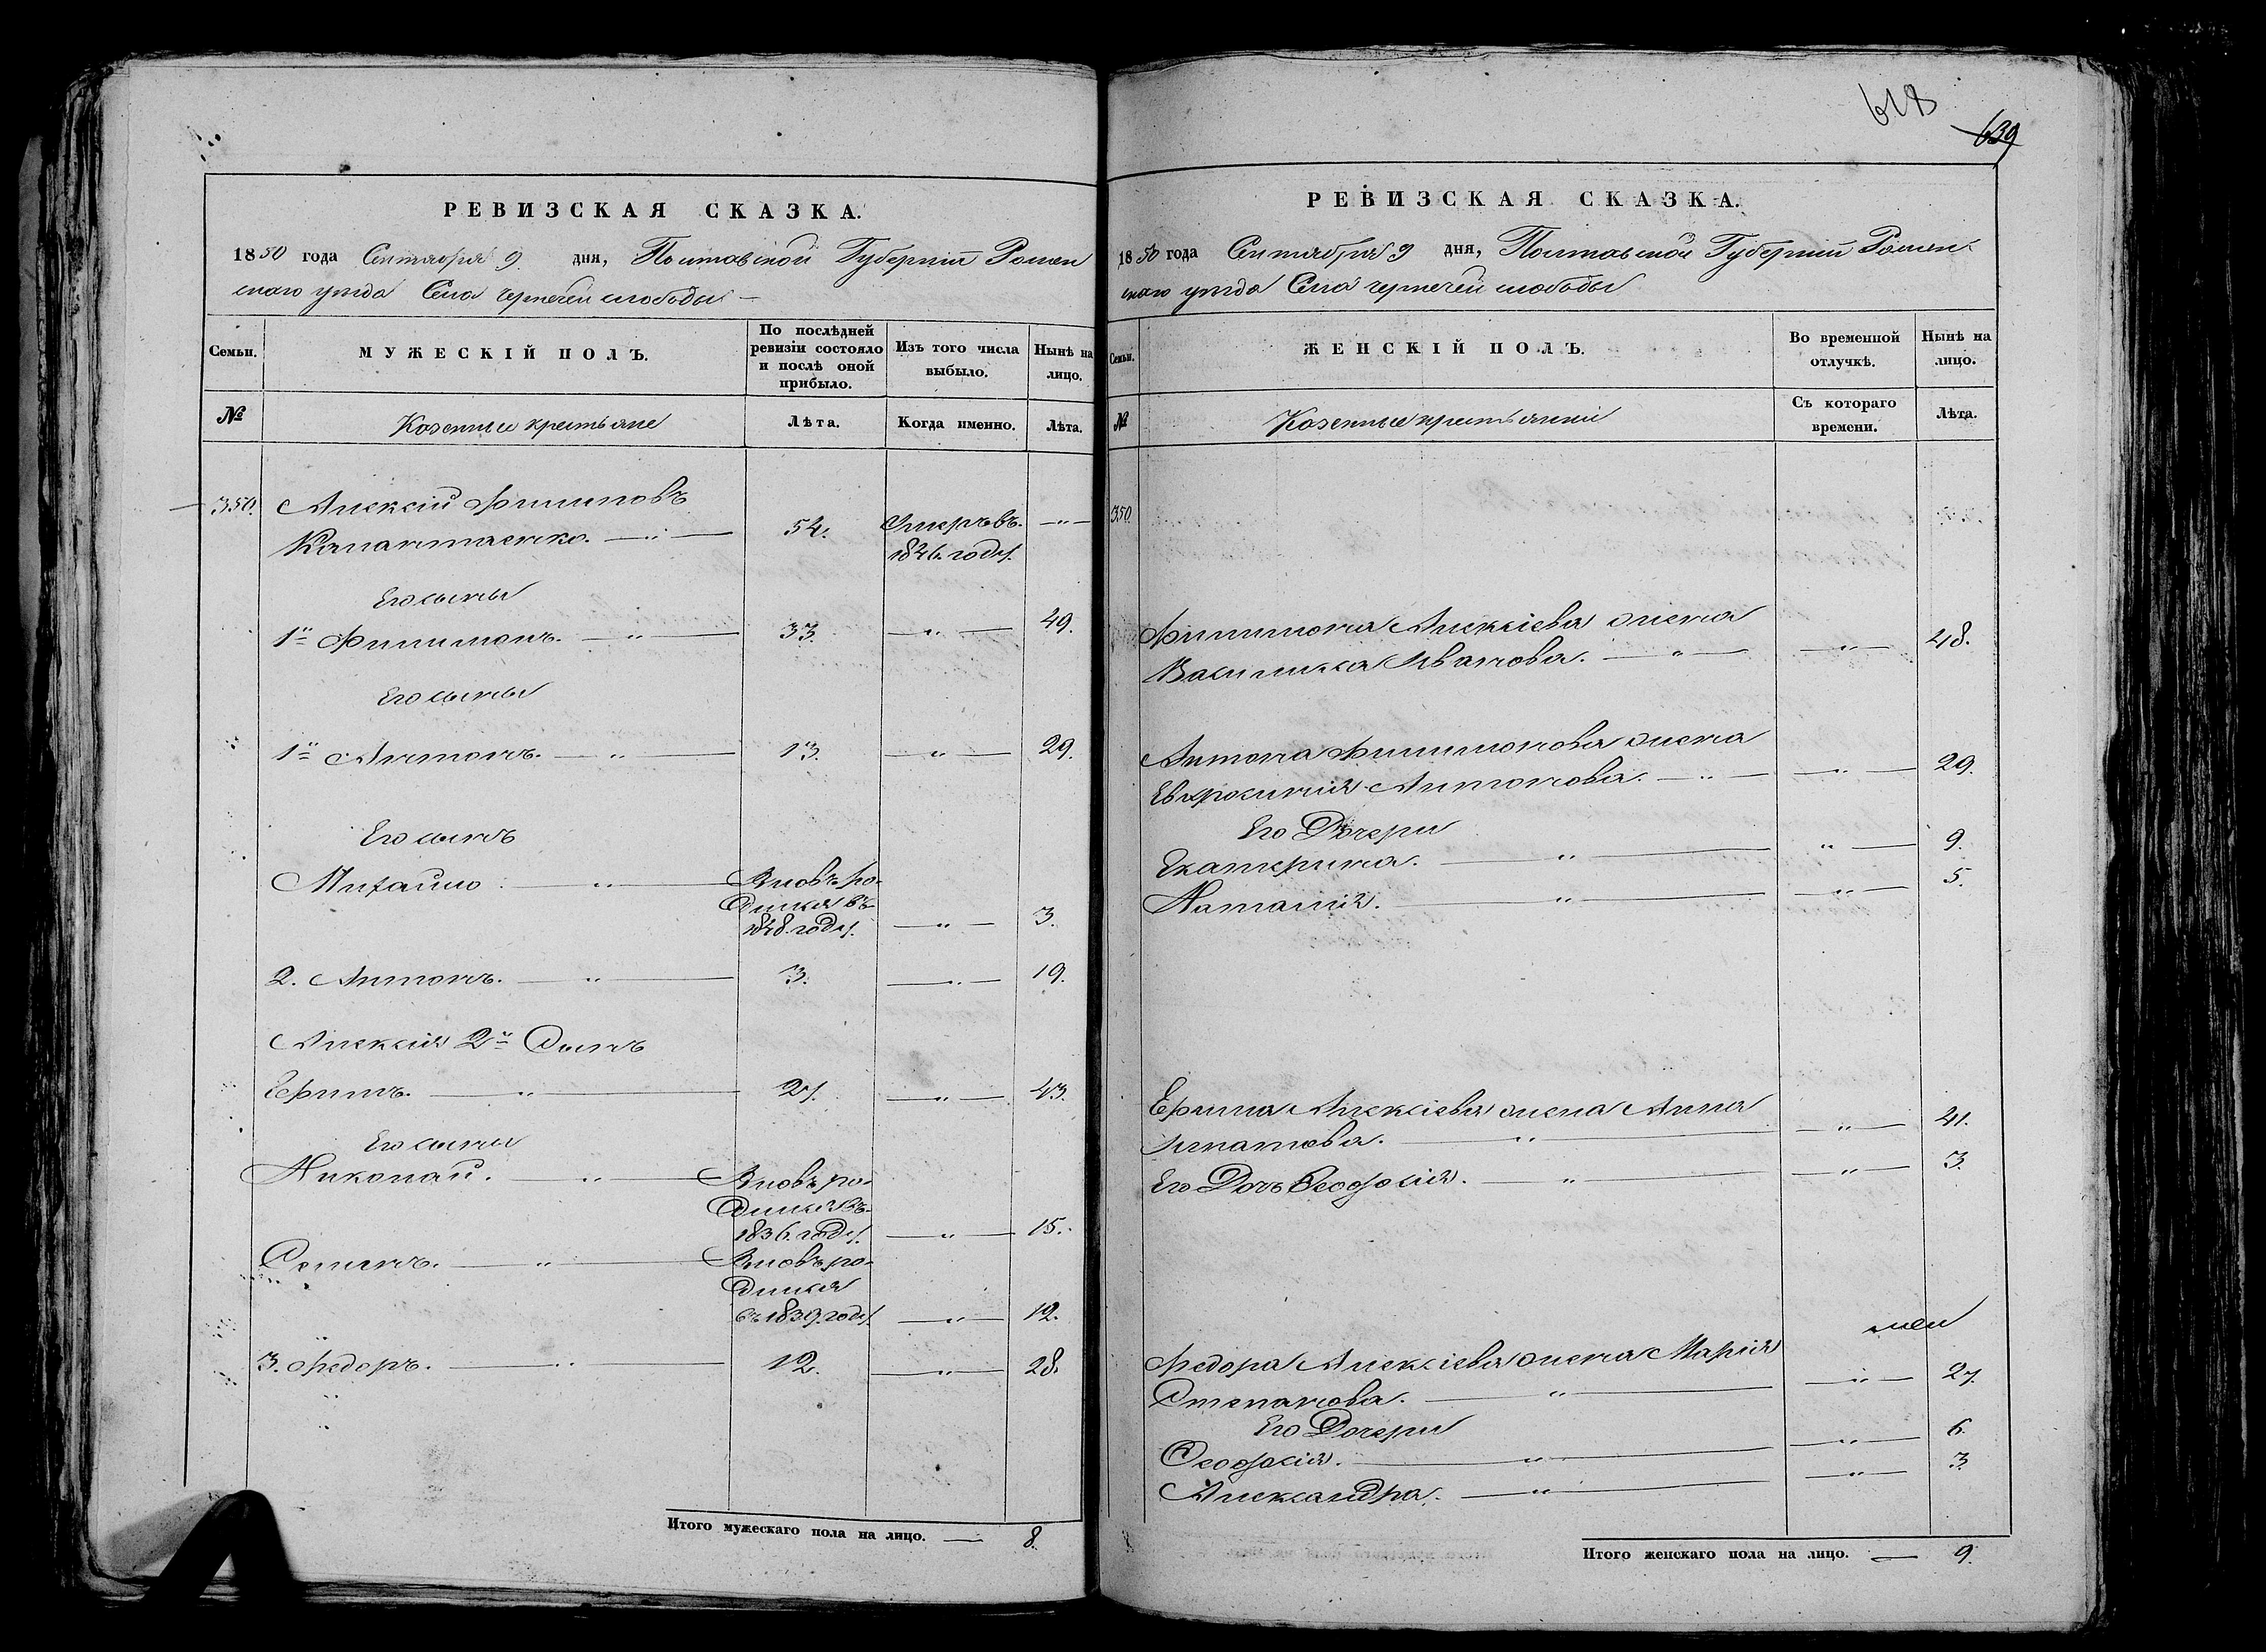 618
639
РЕВИЗСКАЯ СКАЗКА.
1850 года Сентября 9 дня, Полтавской Губернии Ромен
скаго уезда Села Чернечей слободы
Семьи.
МУЖЕСКІЙ ПОЛЪ.
По послѣдней ревизіи состояло и послѣ оной прибыло.
Изъ того числа выбыло.
Нынѣ на лицо.
№
Казенные крестьяне
Лѣта.
Когда именно.
Лѣта.
350. Алексій Филиповъ
54. Умеръ въ
1846. году.
Его сыны
1й Филимонъ. 33. 49.
Его сыны
1й Антонъ. 13. 29.
Его сынъ
Михайло Вновь ро-
дился въ
1848. году. 3.
2. Антонъ. 3. 19.
Алексія 2й Сынъ
Ефимъ. 27. 43.
Его сыны
Николай. Вновь ро-
дился въ
1836. году. 15.
Семенъ. Вновь ро-
дился
въ 1839. году. 12.
3. Федоръ. 12. 28.
Итого мужескаго пола на лицо. 8.
РЕВИЗСКАЯ СКАЗКА.
1850 года Сентября 9 дня, Полтавской Губернии Ромен-
скаго уезда Села Чернечей слободы
Семьи.
ЖЕНСКІЙ ПОЛЪ.
Во временной отлучкѣ.
Нынѣ на лицо.
№
Казенные крестьянки
Съ котораго времени.
Лѣта.
350.
Филимона Алексіева жена
Василиса Иванова. 48.
Антона Филимонова жена
Евфросинія Антонова. 29.
Его Дочери
Екатерина. 9.
Наталія. 5.
Ефима Алексіева жена Анна
Игнатова. 41.
Его Дочь Феодосія. 3.
Федора Алексіева жена Марія
Степанова. 27.
Его Дочери
Феодосія. 6.
Александра. 3.
Итого женскаго пола на лицо. 9.